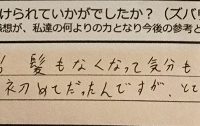 けられていかがでしたか?(ズバリ
感想が、私達の何よりの力となり今後の参考と
髪もなくなって気分も
初めてだったんですが、とて